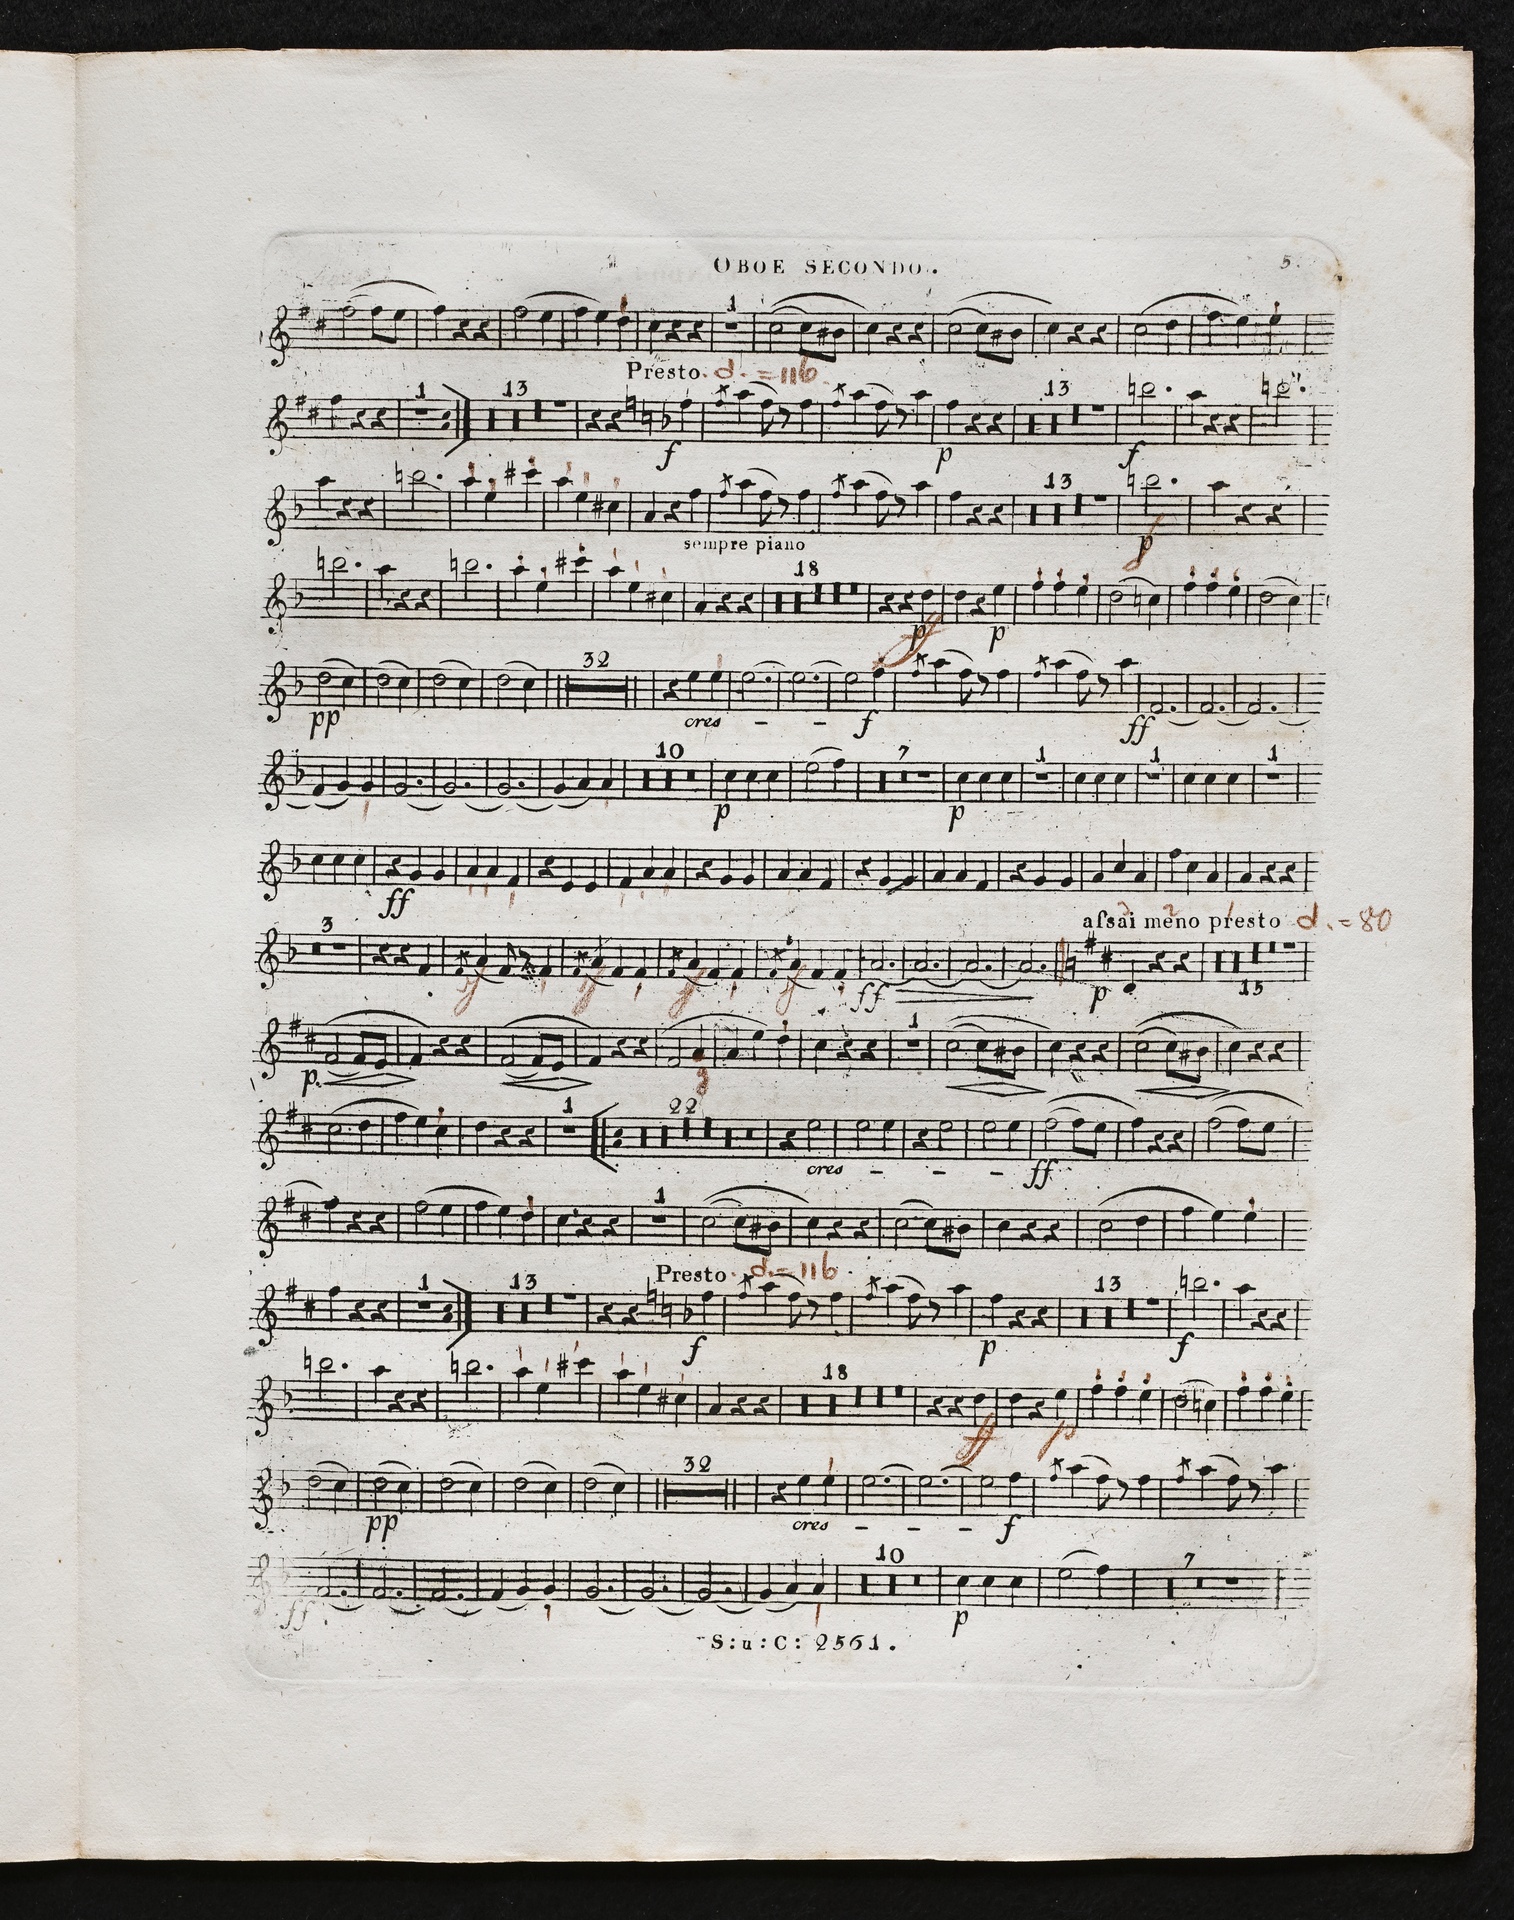 OBOE SECONDO.
5.
1
Presto. d. = 116
1
13
13
f
p
f
13
sempre piano
p
18
p
p
32
pp
cres – –
f
ff
10
7
1
1
1
p
p
ff
aſsai meno presto d. = 80
3
ff
p
15
1
p.
1
22
cres – – –
ff
1
Presto. d. = 116
1
13
13
f
p
f
18
ff
p
32
pp
cres – – –
f
10
7
ff
p
S: u: C: 2561.